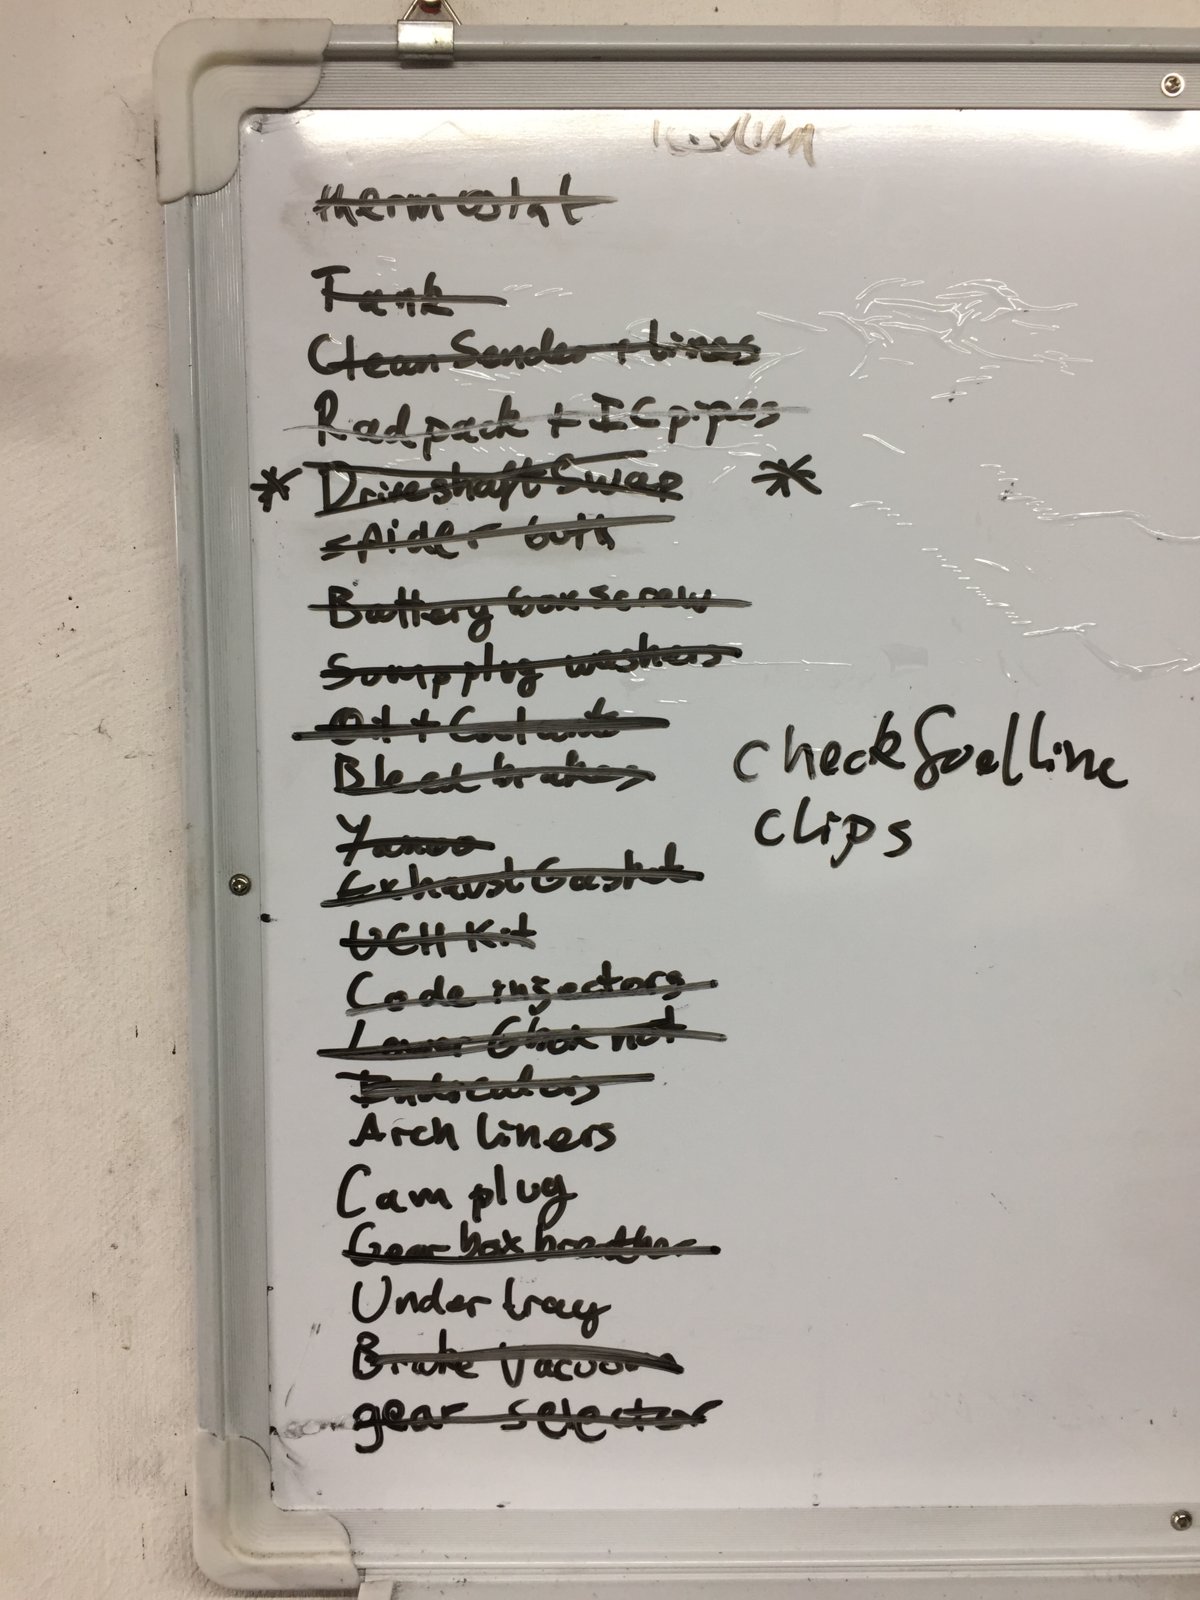 thermostat
Tank
Clean Sender + Lines
Rad pack + IC pipes
* Driveshaft Swap *
spider bolt
Battery box screw
Sump plug washers
Oil + Coolant
Bleed brakes
check fuel line
clips
Exhaust Gasket
UCH Kit
Code injectors
Lower Gbox
Arch liners
Cam plug
Gear box breather
Under tray
Brake Vacuum
gear selector